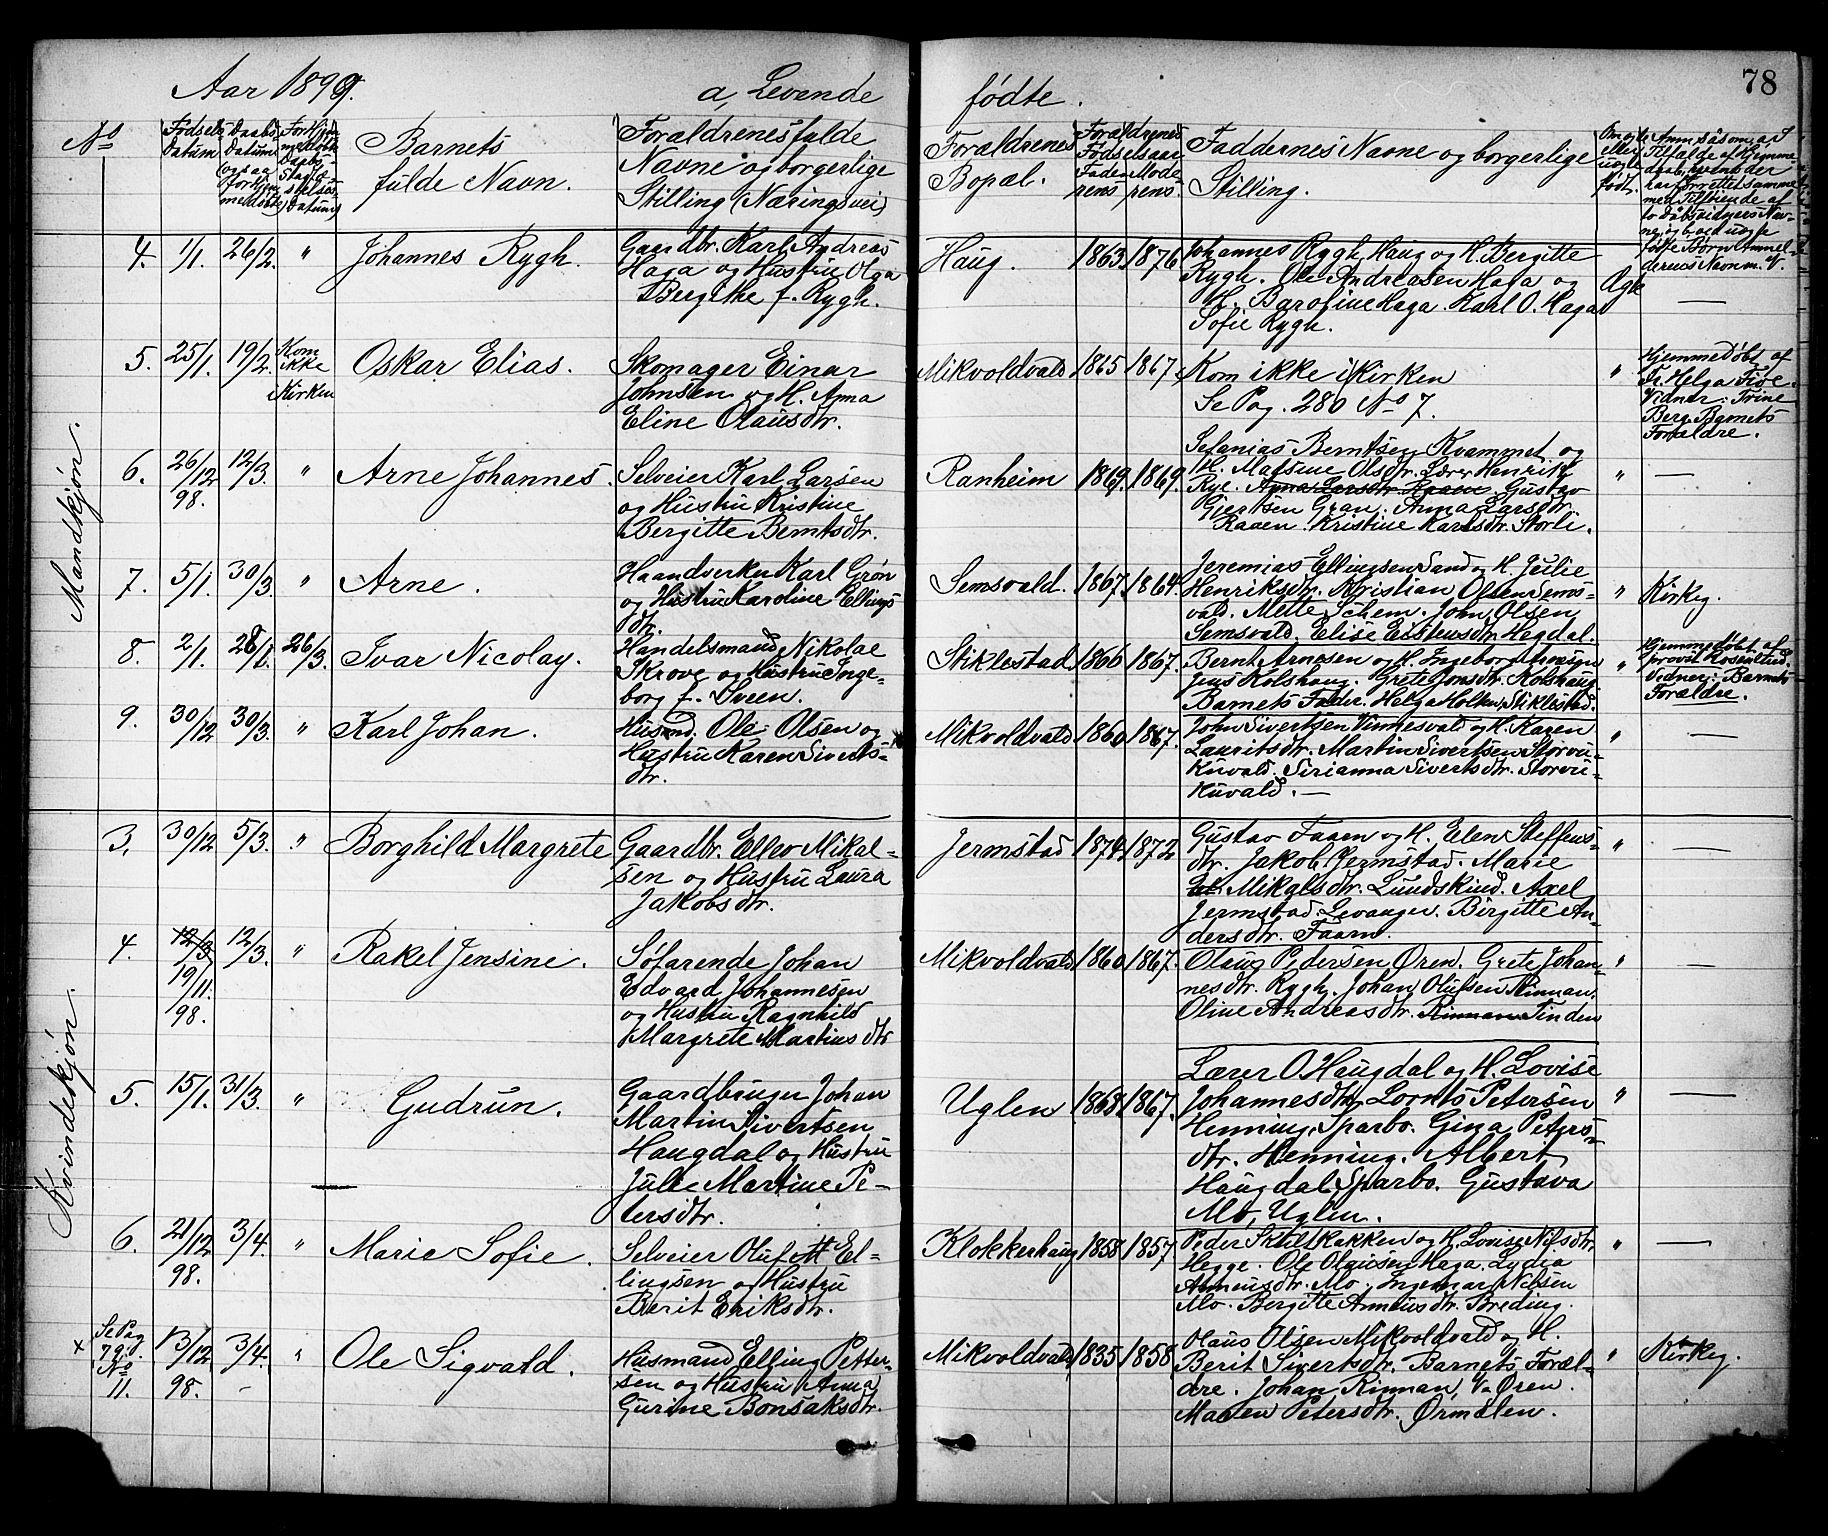 78
Aar 1899. a, Levende fødte.
No
Fødsels Datum
Daabs Datum (ogsaa for hjemmedøbte)
For Hjemmedøbte Daabs Stadfæstelses Datum
Barnets fulde Navn.
Forældrenes fulde Navne og borgerlige Stilling (Næringsvei)
Forældrenes Bopæl.
Forældrenes Fødselsaar Faderens Moderens
Faddernes Navne og borgerlige Stilling.
Mandkjøn.
4. 1/1. 26/2. "
Johannes Rygh.
Gaardbr. Karl Andreas
Haga og Hustru Olga
Bergithe f. Rygh.
Haug. 1863. 1876
Johannes Rygh, Haug og H. Bergitte
Rygh. Ole Andreasen Haga og
H. Barofine Haga. Karl O. Haga
Sofie Rygh.
Ægte —
5. 25/1. 19/2. Kom ikke i Kirken
Oskar Elias.
Skomager Einar
Johnsen og H. Anna
Eline Olausdtr.
Mikvoldvald 1865 1867.
Kom ikke i Kirken
Se Pag. 280 No 7.
"
Hjemmedøbt af
Fr. Helga Fiøe.
Vidner: Trine
Berg, Barnets
Forældre.
6. 26/12 98. 12/3. "
Arne Johannes.
Selveier Karl Larsen
og Hustru Kristine
Bergitte Berntsdtr.
Ranheim 1869. 1869.
Sefanias Berntsen Kvammet og
H. Matsine Olsdtr. Lærer Henrik
Rye. Anna Larsdtr. Raaen Gustav
Gjertsen Gran. Anna Larsdtr.
Raaen. Kristine Karlsdtr. Storli.
" —
7. 5/1. 30/3. "
Arne.
Haandverker Karl Grøn
og Hustru Karoline Ellings
dtr.
Semsvald. 1867. 1864.
Jeremias Ellingsen Sand og H. Julie
Henriksdtr. Kristian Olsen Sems-
vald. Mette Schem. John Olsen
Semsvald. Elise Eistensdtr. Hegdal.
" Kirkeg.
8. 2/1. 28/1. 26/3.
Ivar Nicolay.
Handelsmand Nikolae
Skrove og Hustru Inge-
borg f. Sveen.
Stiklestad 1866 1867.
Bernt Arnesen og H. Ingeborg
Jens Kolshaug. Grete Jonsdtr. Kolshaug
Barnets Fader. Helga Holten, Stiklestad.
"
Hjemmedøbt af
provst
Vidner: Barnets
Forældre.
9. 30/12 30/3. "
Karl Johan.
Husmd. Ole Olsen og
Hustru Karen Siverts-
dtr.
Mikvoldvald 1860 1867.
John Sivertsen Vinnesvald og H. Karen
Lauritsdtr. Martin Sivertsen Storvu-
kuvald. Sirianna Sivertsdtr. Storvu-
kuvald. —
" —
Kvindekjøn.
3. 30/12 5/3. "
Borghild Margrete
Gaardbr. Ellev Mikal-
sen og Hustru Laura
Jakobsdtr.
Jermstad 1874 1872
Gustav Faaen og H. Elen Steffens-
dtr. Jakob Jermstad. Marie
Mikalsdtr. Lundskind. Axel
Jermstad. Levanger. Birgitte An-
dersdtr. Faaen.
" —
4. 12/3 19/11. 98. 12/3. "
Rakel Jensine.
Søfarende Johan
Edvard Johannesen
og Hustru Ragnhild
Margrete Martinusdtr
Mikvoldvald 1860 1867.
Olaus Pedersen Øren. Grete Johan-
nesdtr. Rygh. Johan Olufsen Rinnan.
Oline Andreasdtr. Rinnan Tinden
" —
5. 15/1. 31/3. "
Gudrun.
Gaardbruger Johan
Martin Sivertsen
Haugdal og Hustru
Julie Martine Pe-
tersdtr.
Uglen 1868. 1867.
Lærer O. Haugdal og H. Lovise
Johannesdtr. Lornts Petersen
Henning, Sparbo. Gina Peters-
dtr. Henning. Albert
Haugdal, Sparbo. Gustava
Mo, Uglen.
" —
6. 21/12 98. 3/4. "
Marie Sofie.
Selveier Oluf M El-
lingsen og Hustru
Berit Eriksdtr.
Klokkerhaug 1858 1857.
Peder Skiltbakken og H. Lovise Nilsdtr.
Hegge. Ole Olausen Haga. Lydia
Arneusdtr. Mo. Ingemar Nilsen
Mo. Bergitte Arneusdtr. Breding.
" —
× Se Pag 79: No 11. 13/12 98. 3/4. — "
Ole Sigvald.
Husmand Elling Petter-
sen og Hustru Anna
Gurine Bonsaksdtr.
Mikvoldvald 1835 1858
Olaus Olsen Mikvoldvald og H.
Berit Sivertsdtr. Barnets Foræl-
dre. Johan Rinnan, V. Øren.
Maren Petersdtr. Ørmelen.
" Kirkeg.